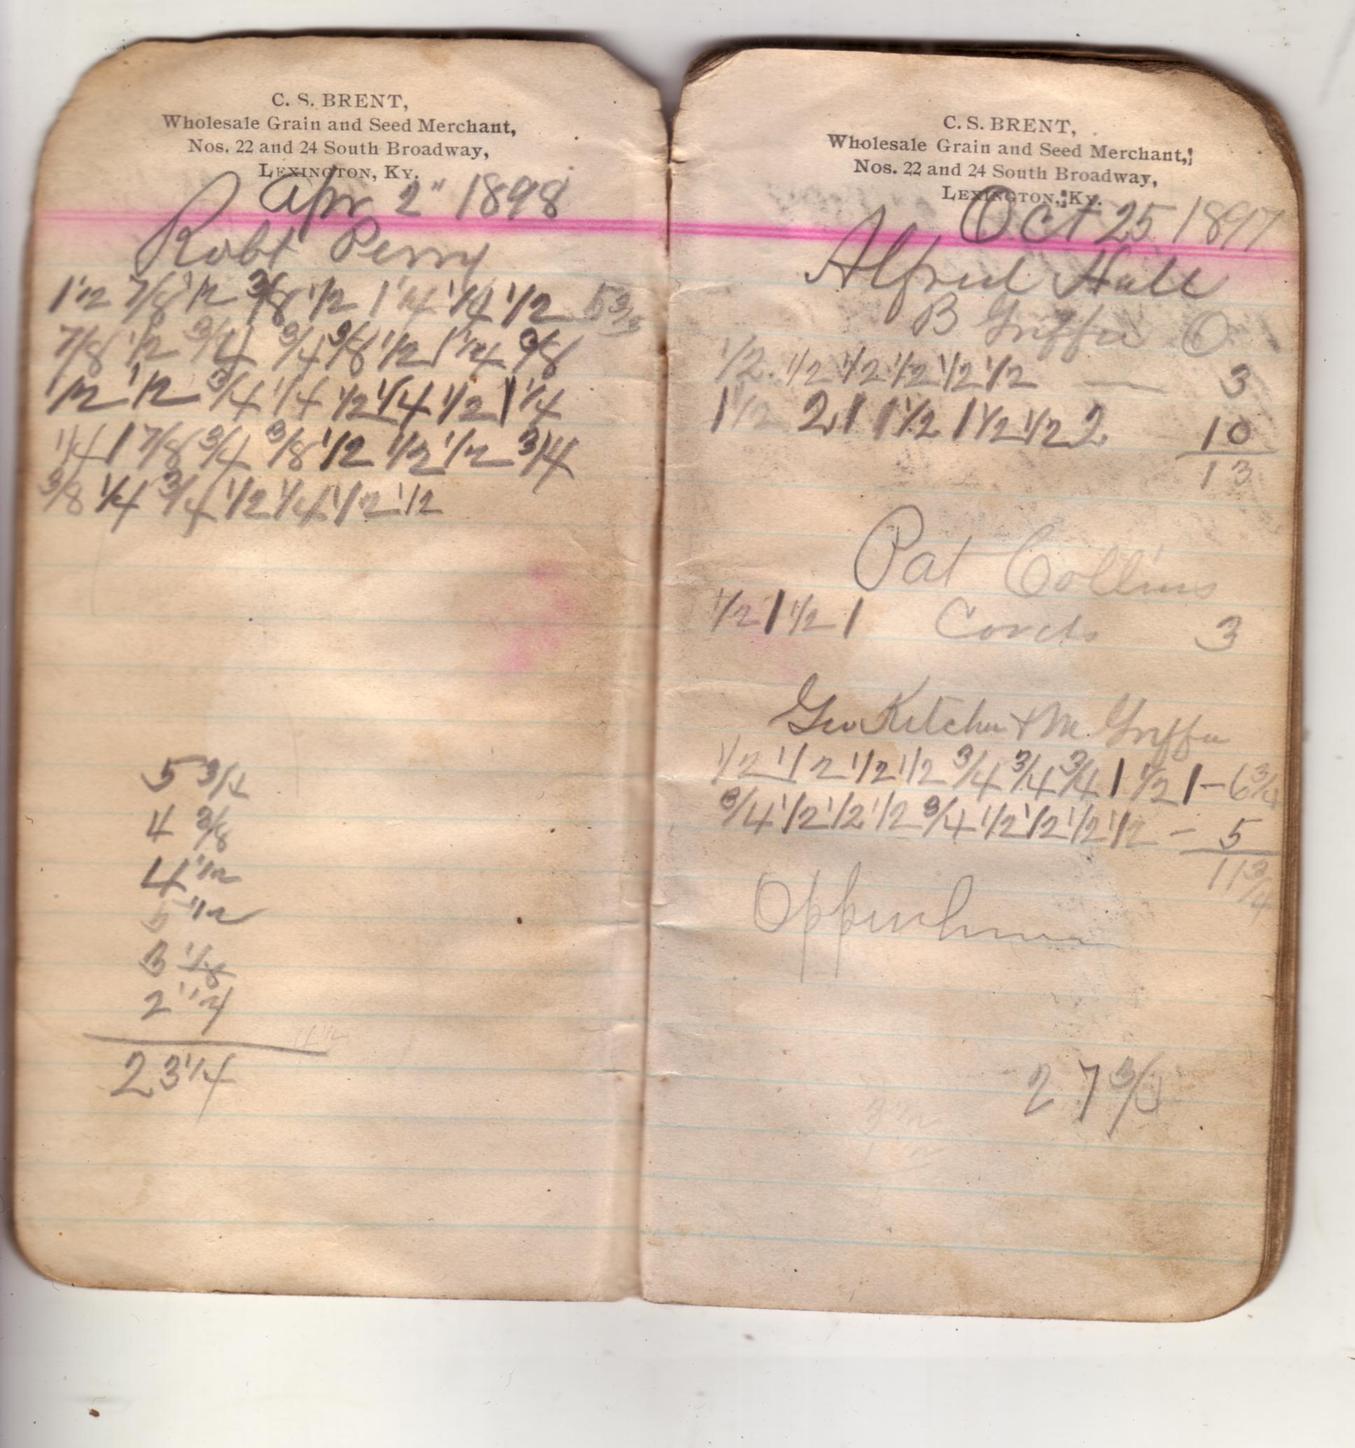 C. S. BRENT,
Wholesale Grain and Seed Merchant,
Nos. 22 and 24 South Broadway,
LEXINGTON, KY.
Apr 2" 1898
Robt Perry
1 1/2 7/8 1/2 3/8 1/2 1 1/4 1/4 1/2
7/8 1/2 3/4 3/4 3/8 1/2 1 1/4 3/8
1/2 1/2 3/4 1/4 1/2 1/4 1/2 1 1/4
1/4 1 7/8 3/4 3/8 1/2 1/2 1/2 3/4
3/8 1/4 3/4 1/2 1/4 1/2 1/2
5 3/4
4 3/8
4 1/2
5 1/2
3 1/8
2 1/4
23 1/4
C. S. BRENT,
Wholesale Grain and Seed Merchant,
Nos. 22 and 24 South Broadway,
LEXINGTON, KY.
Oct 25 1897
Alfred Hall
B Griffin
1/2 1/2 1/2 1/2 1/2 1/2 — 3
1 1/2 2 1 1 1/2 1 1/2 1/2 2 10
13
Pat Collins
1/2 1 1/2 1 Cords 3
Geo Kitchen & M Griffin
1/2 1/2 1/2 1/2 3/4 3/4 3/4 1 1/2 1 – 6 3/4
3/4 1/2 1/2 1/2 3/4 1/2 1/2 1/2 1/2 – 5
11 3/4
27 3/4